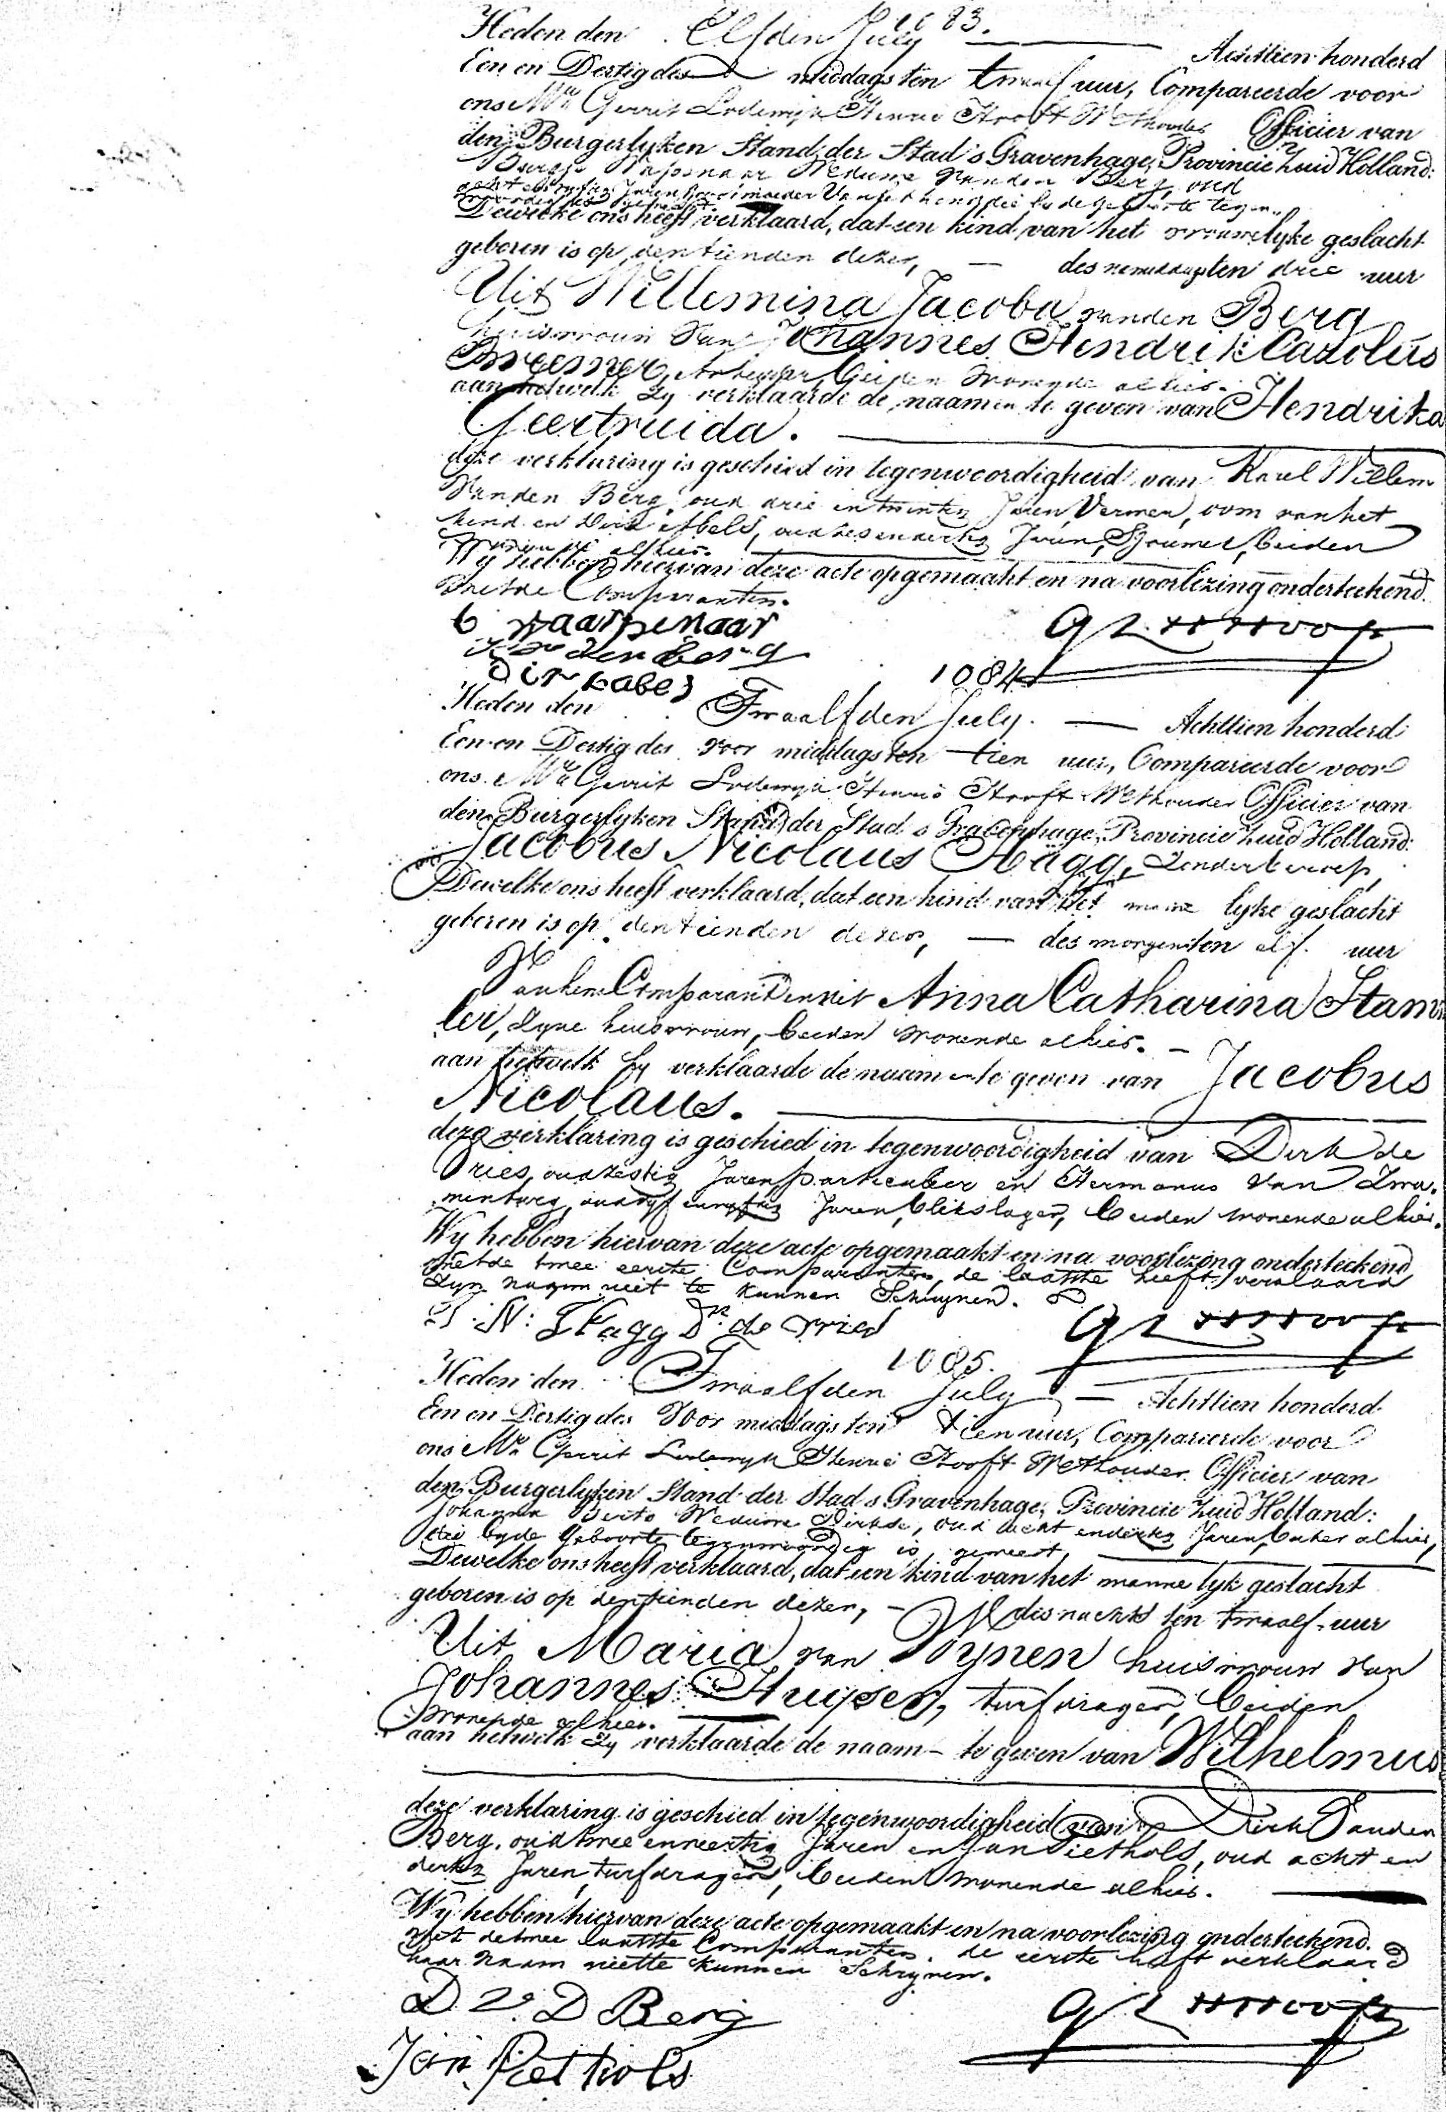 1083.
Heden den Elfden July — Achttien honderd
Een en Dertig des middags ten twaalf uur, Compareerde voor
ons Mr. Gerrit Lodewyk Henri Hooft Wethouder Officier van
den Burgerlyken Stand der Stad s Gravenhage, Provincie Zuid Holland:
Weduwe van den Berg, oud
Dewelke ons heeft verklaard, dat een kind van het vrouwelyke geslacht
geboren is op den tienden dezer, — des namiddags ten drie uur
Uit Willemina Jacoba van den Berg
huisvrouw van Johannes Hendrik Carolus
Breemer, wonende alhier.
aan hetwelk zy verklaarde de naamen te geven van Hendrika
Geertruida.
deze verklaring is geschied in tegenwoordigheid van Karel Willem
van den Berg, oud drie en twintig Jaren, Verwer, oom van het
kind en Dirk Abels, oud zes en dertig Jaren, Sjouwer, beiden
wonende alhier.
Wy hebben hiervan deze acte opgemaakt en na voorlezing onderteekend
met de Comparanten.
b waapenaar
van den berg
Dirk abels
1084
Heden den Twaalfden July. — Achttien honderd
Een en Dertig des voor middags ten tien uur, Compareerde voor
ons Mr. Gerrit Lodewyk Henri Hooft Wethouder Officier van
den Burgerlyken Stand der Stad s Gravenhage, Provincie Zuid Holland:
Jacobus Nicolaus Hägg, zonder beroep,
Dewelke ons heeft verklaard, dat een kind van het manne lyke geslacht
geboren is op den tienden dezer, — des morgens ten elf uur
Van hem Comparant en uit Anna Catharina Stam
ler, zyne huisvrouw, beiden wonende alhier. —
aan hetwelk hy verklaarde de naamen te geven van Jacobus
Nicolaus.
deze verklaring is geschied in tegenwoordigheid van Dirk de
Vries, oud zestig Jaren, particulier en Hermanus van Zwa
nenburg, oud vyf en vyftig Jaren, blikslager, beiden wonende alhier.
Wy hebben hiervan deze acte opgemaakt en na voorlezing onderteekend
met de twee eerste Comparanten, de laatste heeft verklaard
zyn naam niet te kunnen Schryven.
J. N. Hägg Dk. de Vries
1085.
Heden den Twaalfden July — Achttien honderd
Een en Dertig des Voor middags ten tien uur, Compareerde voor
ons Mr. Gerrit Lodewyk Henri Hooft Wethouder Officier van
den Burgerlyken Stand der Stad s Gravenhage, Provincie Zuid Holland:
Johanna Berto Weduwe Dirkse, oud acht en dertig Jaren, baker alhier,
die by de Geboorte tegenwoordig is geweest,
Dewelke ons heeft verklaard, dat een kind van het manne lyk geslacht
geboren is op den tienden dezer, — des nachts ten twaalf uur
Uit Maria van Wynen huisvrouw van
Johannes Huyser, turfdrager, beiden
wonende alhier.
aan hetwelk zy verklaarde de naam — te geven van Wilhelmus
deze verklaring is geschied in tegenwoordigheid van Dirk Van den
Berg, oud twee en veertig Jaren en Jan Piethols, oud acht en
dertig Jaren, turfdragers, beiden wonende alhier.
Wy hebben hiervan deze acte opgemaakt en na voorlezing onderteekend
met de twee laatste Comparanten, de eerste heeft verklaard
haar naam niet te kunnen Schryven.
D V. D Berg
Jan Piethols